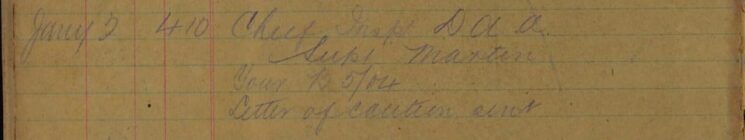 Jany 2 410 Chief Insp. D a a.
Supt Martin
Your B 5/04
Letter of caution sent